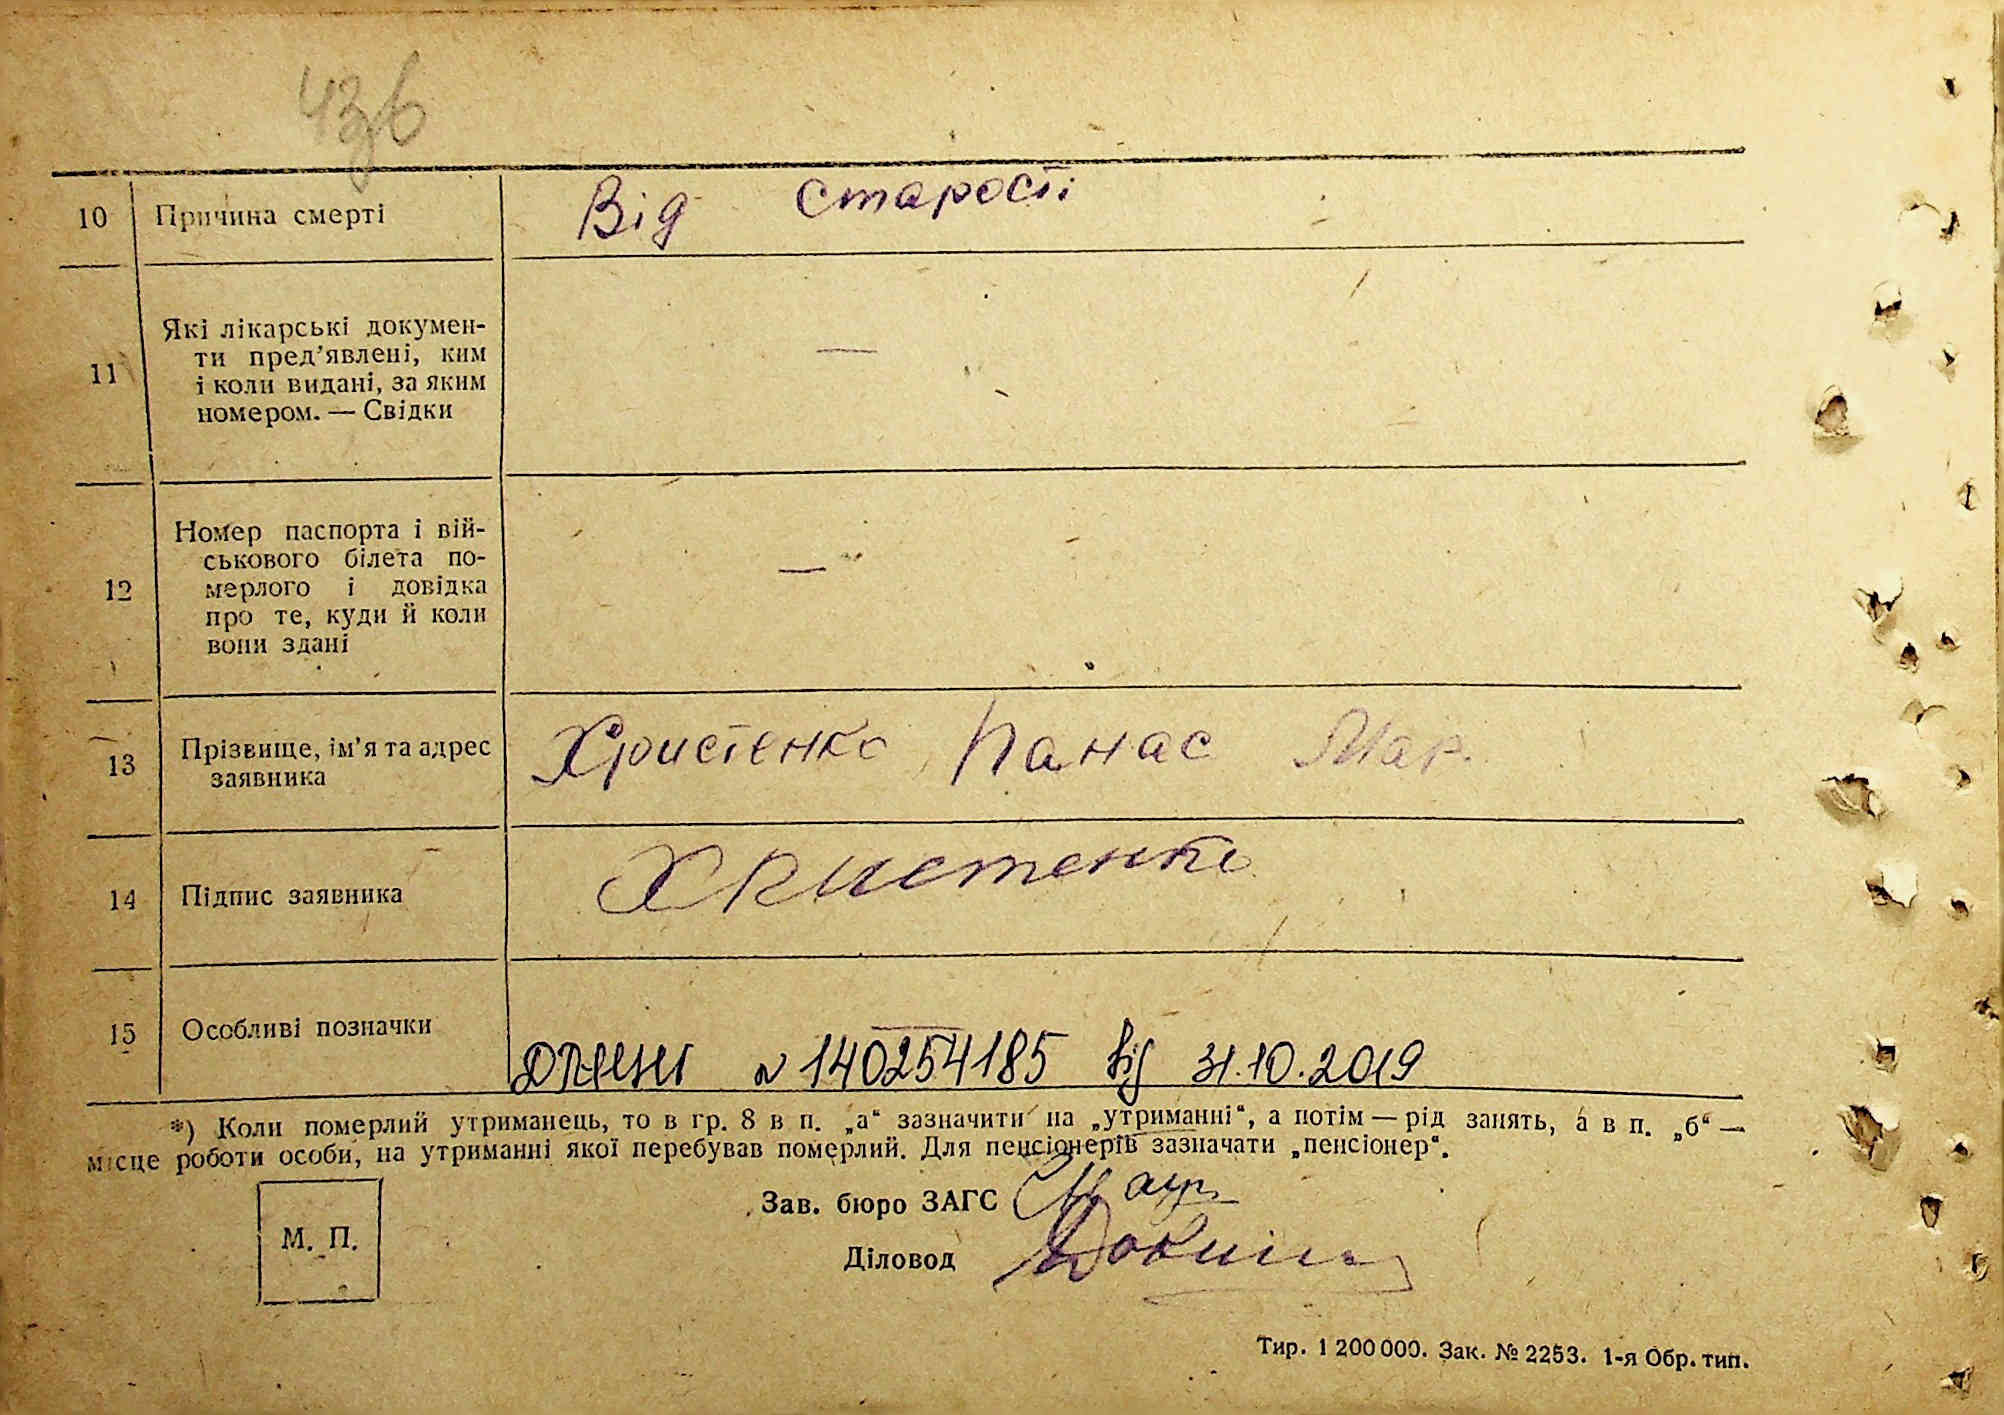 10 Причина смерті Від старості
11 Які лікарські докумен-
ти пред’явлені, ким
і коли видані, за яким
номером. — Свідки —
12 Номер паспорта і вій-
ськового білета по-
мерлого і довідка
про те, куди й коли
вони здані —
13 Прізвище, ім’я та адрес
заявника Христенко Панас Мар.
14 Підпис заявника Христенко
15 Особливі позначки № 140254185 від 31.10.2019
*) Коли померлий утриманець, то в гр. 8 в п. „а“ зазначити на „утриманні“, а потім — рід занять, а в п. „б“ —
місце роботи особи, на утриманні якої перебував померлий. Для пенсіонерів зазначати „пенсіонер“.
Зав. бюро ЗАГС
М. П.
Діловод
Тир. 1 200 000. Зак. № 2253. 1-я Обр. тип.